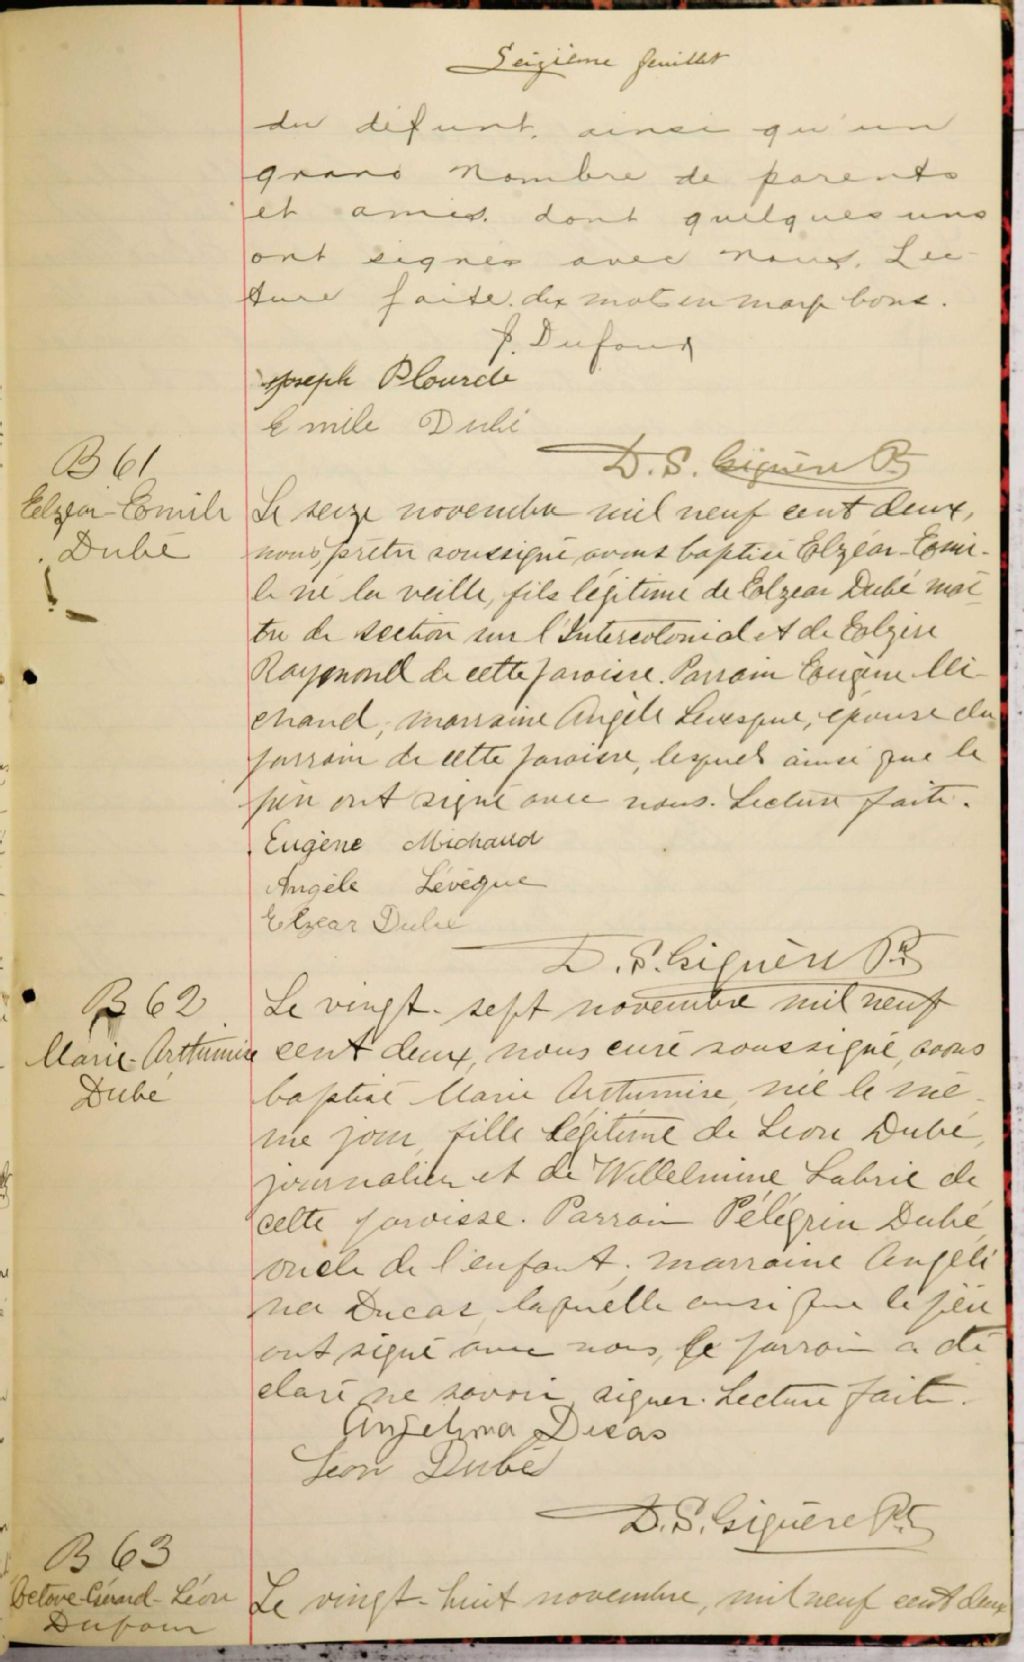 Seizième feuillet
du défunt, ainsi qu'un
grand nombre de parents
et amis dont quelques uns
ont signés avec nous. Lec-
ture faite. dix mots en marge bons.
J. Dufour
Joseph Plourde
Emile Dubé
D. S. Giguère Pt
B 61
Elzéar-Emile
Dubé
Le seize novembre mil neuf cent deux,
nous, prêtre soussigné avons baptisé Elzéar-Emi-
le né la veille, fils légitime de Elzear Dubé maî-
tre de section sur l'Intercolonial et de Elzire
Raymond de cette paroisse. Parrain Eugène Mi-
chaud, marraine Angèle Levesque, épouse du
parrain de cette paroisse, lesquels ainsi que le
père ont signé avec nous. Lecture faite.
Eugène Michaud
Angèle Lévèque
Elzear Dubé
D. S. Giguère Pt
B 62
Marie-Arthémise
Dubé
Le vingt-sept novembre mil neuf
cent deux, nous curé soussigné, avons
baptisé Marie Arthémise, née le mê-
me jour, fille légitime de Léon Dubé,
journalier et de Willelmine Labrie de
cette paroisse. Parrain Pélégrin Dubé,
oncle de l'enfant; marraine Angéli
na Ducas laquelle ainsi que le père
ont signé avec nous, le parrain a dé
claré ne savoir signer. Lecture faite.
Angelina Dicas
Léon Dubé
D. S. Giguère Pt
B 63
Octave-Gérard-Léon
Dufour
Le vingt-huit novembre, mil neuf cent deux